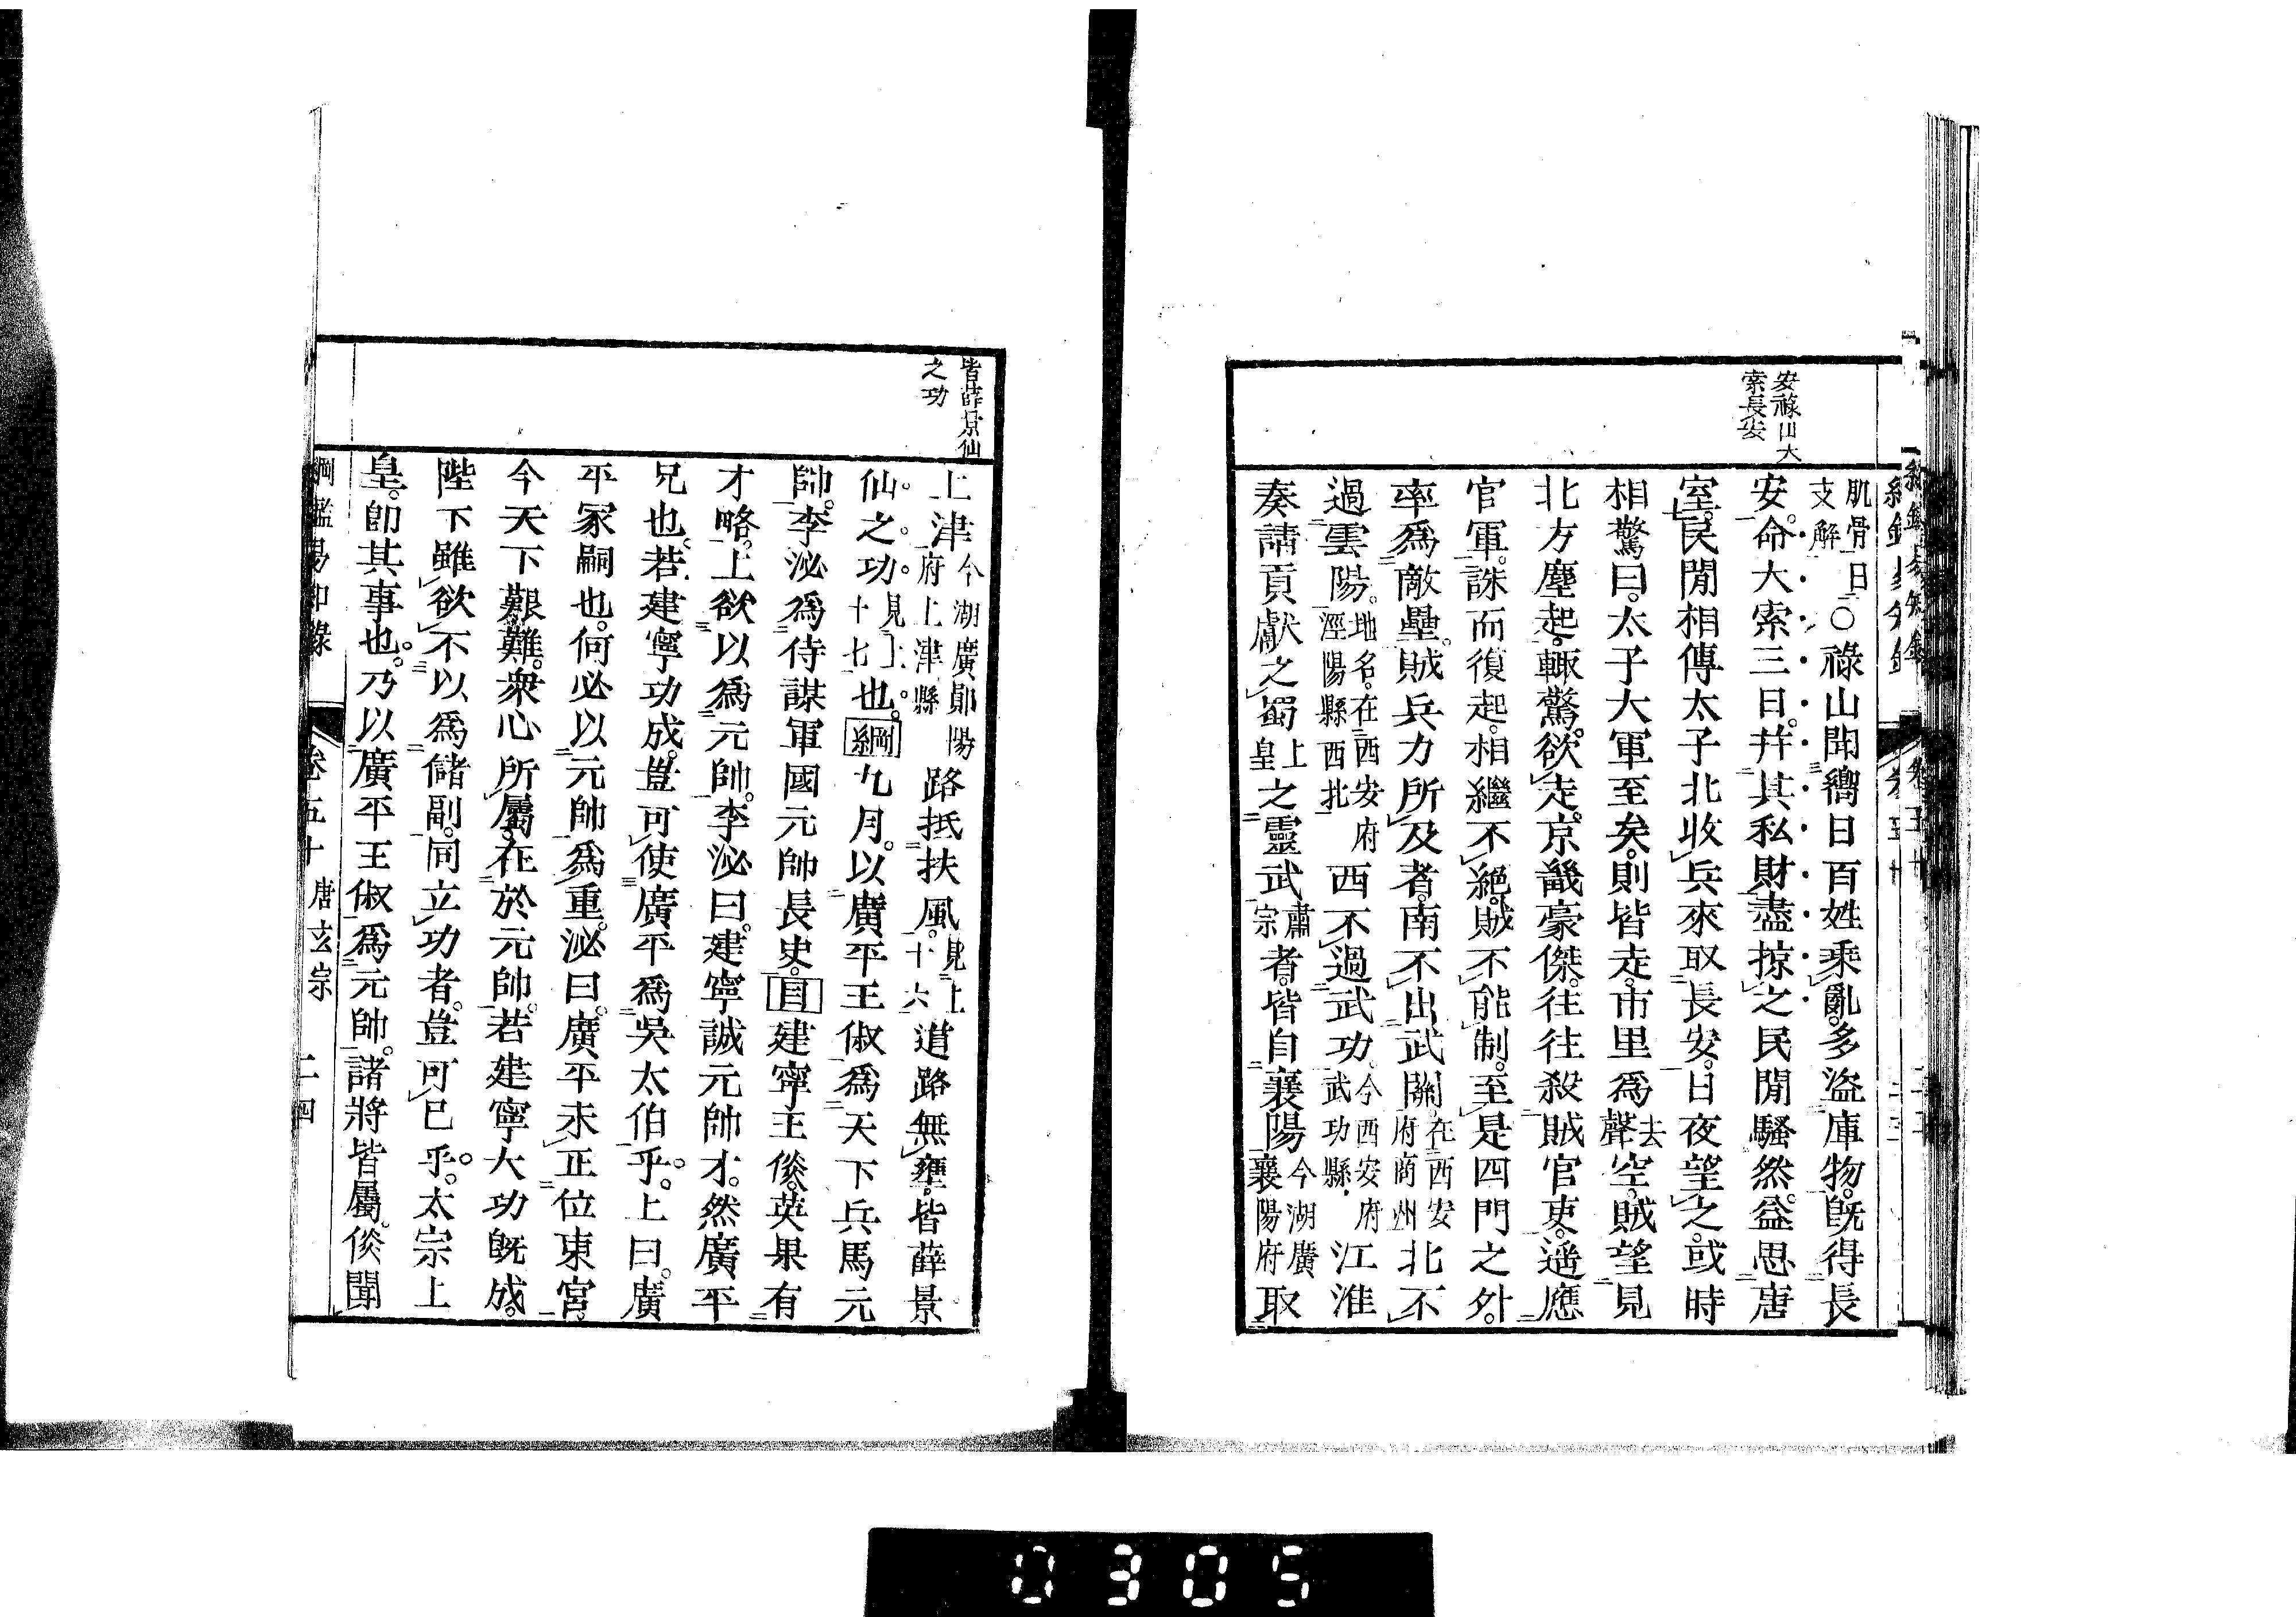 安祿山大
索長安
肌骨曰支解○祿山聞嚮日百姓乘亂多盜庫物。既得長
安。命大索三日。幷其私財盡掠之民間騷然。益思唐
室。民閒相傳太子北收兵來取長安。日夜望之。或時
相驚曰。太子大軍至矣。則皆走。市里爲空去聲。賊望見
北方塵起。輒驚。欲走。京畿豪傑。往往殺賊官吏。遙應
官軍。誅而復起。相繼不絕。賊不能制。至是四門之外。
率爲敵壘。賊兵力所及者。南不出武關。在西安府商州北不
過雲陽。地名。在西安府涇陽縣西北西不過武功。今西安府武功縣江淮
奏請貢獻之蜀上皇之靈武肅宗者。皆自襄陽今湖廣襄陽府取
皆薛景仙
之功
上津今湖廣鄖陽府上津縣路抵扶風。見上十六道路無壅。皆薛景
仙之功見上十七也。綱九月。以廣平王俶爲天下兵馬元
帥。李泌爲侍謀軍國元帥長史。目建寧王倓。英果有
才略。上欲以爲元帥。李泌曰。建寧誠元帥才。然廣平
兄也。若建寧功成。豈可使廣平爲吳太伯乎。上曰。廣
平冢嗣也。何必以元帥爲重。泌曰。廣平未正位東宮。
今天下艱難。衆心所屬。在於元帥。若建寧大功既成。
陛下雖欲不以爲儲副。同立功者。豈可已乎。太宗上
皇。卽其事也。乃以廣平王俶爲元帥。諸將皆屬。倓聞
綱鑑易知錄 卷五十 唐玄宗 二四
0305